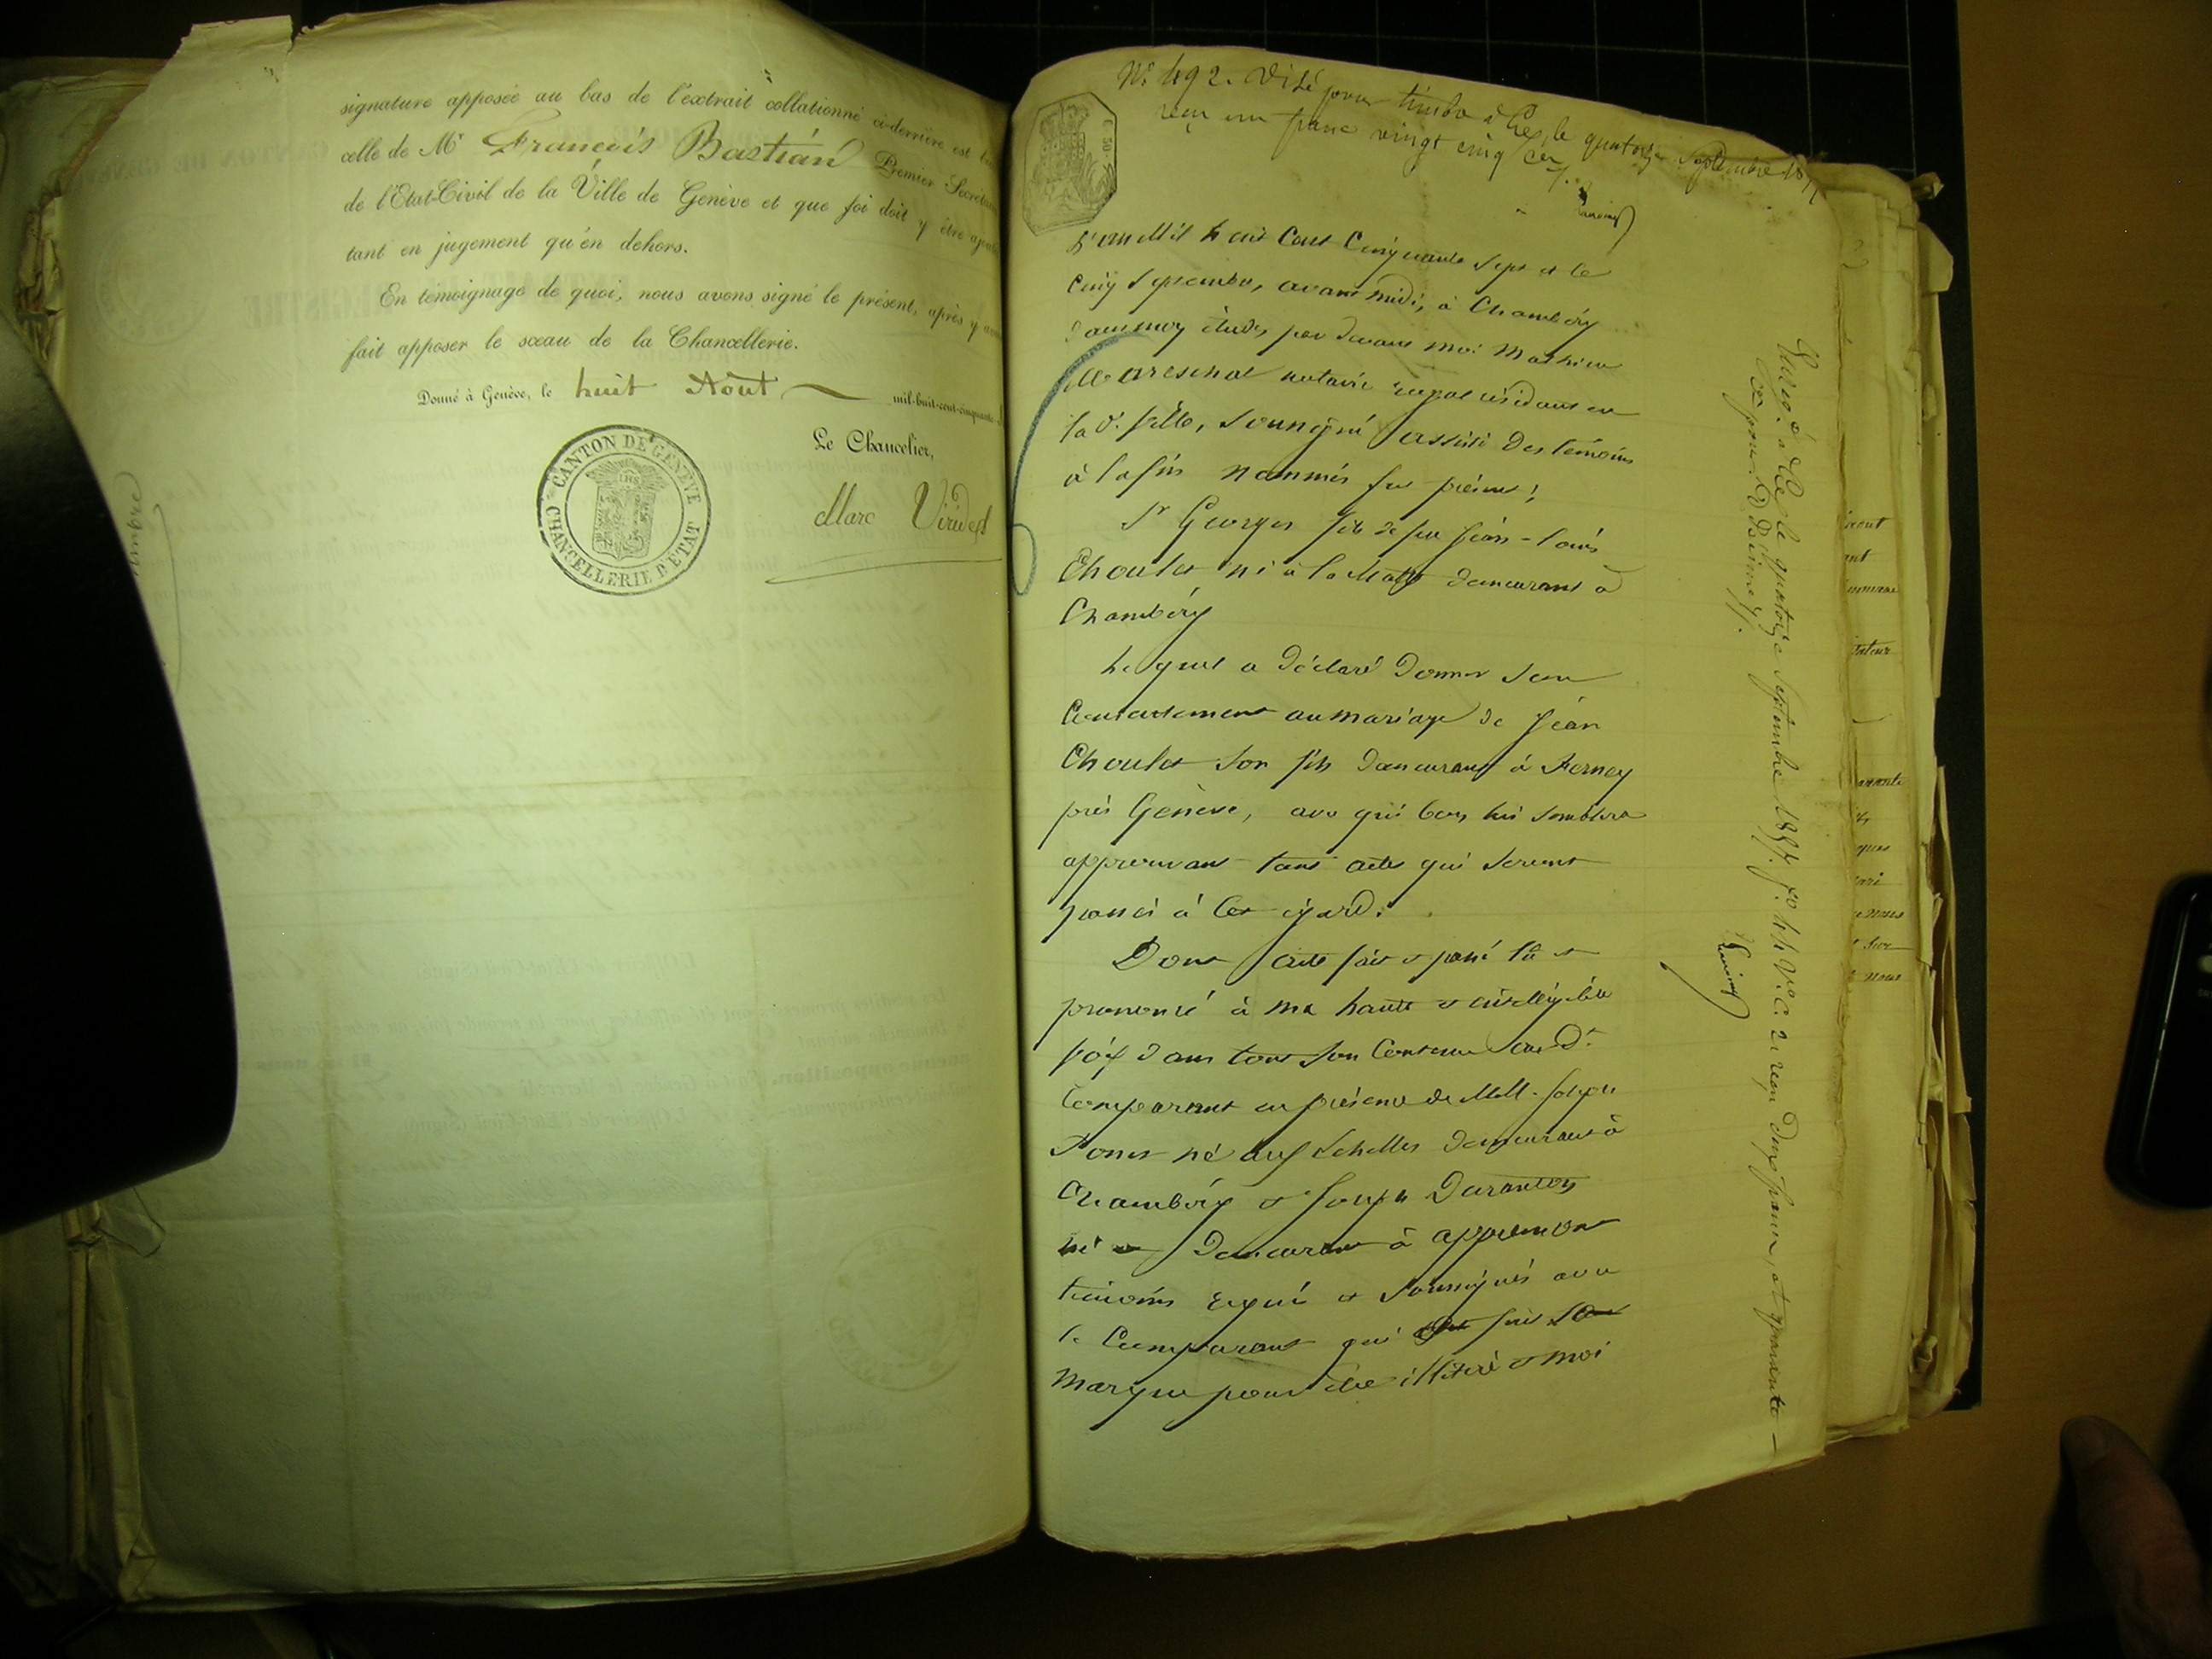 signature apposée au bas de l'extrait collationné ci-derrière est
celle de Mr François Bastian Premier Secrétaire
de l'Etat-Civil de la Ville de Genève et que foi doit y être
tant en jugement qu'en dehors.
En témoignage de quoi, nous avons signé le présent, après y avoir
fait apposer le sceau de la Chancellerie.
Donné à Genève, le huit Août mil-huit-cent-cinquante
Le Chancelier,
Marc Viridet
CANTON DE GENÈVE
CHANCELLERIE D'ETAT
No 492. Visé pour timbre à Gex, le quatorze Septembre 1857
reçu un franc vingt cinq ces
C. 50
L'an Mil huit Cent Cinquante Sept et le
Cinq Septembre, avant midi, à Chambéry
dans mon étude, par devant moi Mathieu
Mareschal notaire royal résidant en
la d. ville, soussigné assisté des témoins
à la fin nommés fut présent;
Sr Georges fils de feu Jean-Louis
Choulet né à la Motte demeurant à
Chambéry
Lequel a déclaré donner son
Consentement au mariage de Jean
Choulet son fils demeurant à Ferney
près Genève, avec qui bon lui semblera
approuvant tout acte qui seront
passés à cet égard.
Dont acte fait & passé lu &
prononcé à ma haute & intelligible
voix dans tout son Contenu au dt
Comparant en présence de MM. Joseph
né aux Echelles demeurant à
Chambéry & Joseph Duranton
né & demeurant à apremont
témoins requis & soussignés avec
le Comparant qui fait sa
marque pour être illitéré & moi
à Gex le quatorze Septembre 1857. fo 44 Vo c. 2 reçu deux francs, et quarante
ces pour Décime